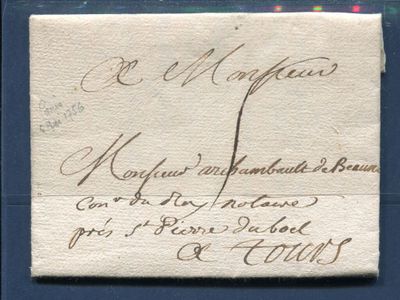 A Monsieur
Monsieur archambault de Beaune
Con.r du Roy notaire
prés St Pierre du boil
A Tours
1756